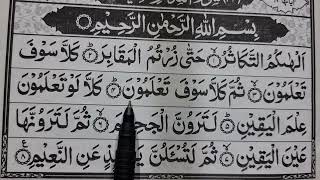 بِسْمِ اللّٰهِ الرَّحْمٰنِ الرَّحِيْمِ
اَلْهٰىكُمُ التَّكَاثُرُ ۙ حَتّٰى زُرْتُمُ الْمَقَابِرَ ؕ كَلَّا سَوْفَ
تَعْلَمُوْنَ ۙ ثُمَّ كَلَّا سَوْفَ تَعْلَمُوْنَ ؕ كَلَّا لَوْ تَعْلَمُوْنَ
عِلْمَ الْيَقِيْنِ ؕ لَتَرَوُنَّ الْجَحِيْمَ ۙ ثُمَّ لَتَرَوُنَّهَا
عَيْنَ الْيَقِيْنِ ۙ ثُمَّ لَتُسْـَٔلُنَّ يَوْمَىِٕذٍ عَنِ النَّعِيْمِ